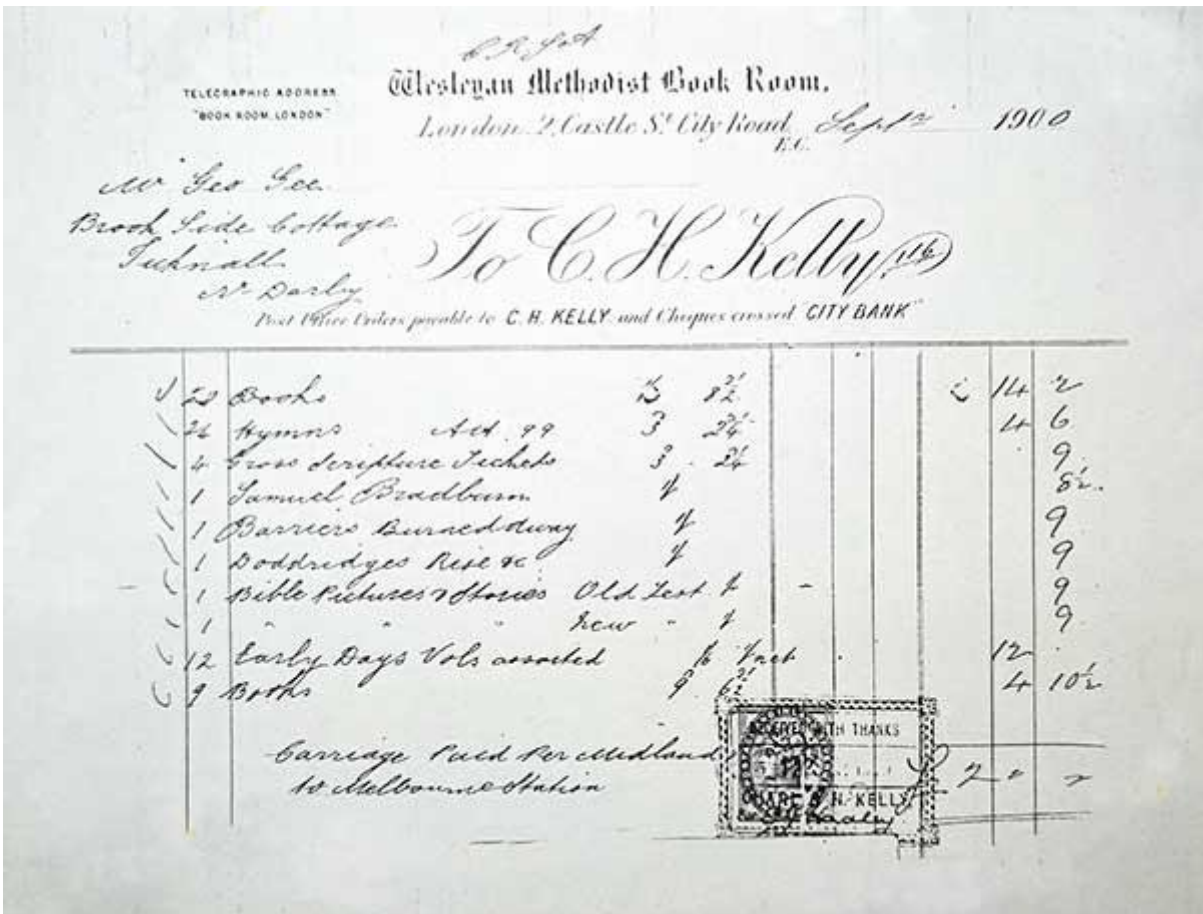 TELEGRAPHIC ADDRESS
"BOOK ROOM, LONDON"
Wesleyan Methodist Book Room.
London. 2, Castle St. City Road, E.C. Sept 1900
Mr Geo Gee
Brook Side Cottage
Ticknall
Nr Derby
To C. H. Kelly
Post Office Orders payable to C. H. KELLY and Cheques crossed "CITY BANK"
Books 8½ 14 2
Hymns Act. 99 3 2¼ 4 6
4 Gross Scripture Tickets 3 2¼ 9
1 Samuel Bradburn 1/ 8½
1 Barriers Burned Away 1/ 9
1 Doddridges Rise &c 1/ 9
1 Bible Pictures & Stories Old Test 1/ 9
1 " " " New " 1/ 9
12 Early Days Vols assorted 1/ net 12
9 Books 9 6½ 4 10½
Carriage Paid Per Midland
to Melbourne Station
RECEIVED WITH THANKS
H. KELLY